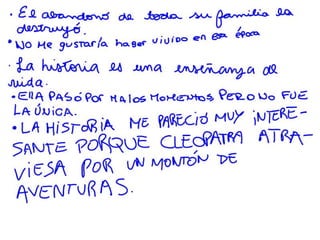 • El abandono de toda su familia la
destruyó.
• NO ME GUSTARÍA haber VIVIDO EN ESA ÉPOCA
. La historia es una enseñanza de
vida.
• Ella PASÓ POR MALOS MOMENTOS PERO NO FUE
LA ÚNICA.
• LA HISTORIA ME PARECIÓ MUY INTERE-
SANTE PORQUE CLEOPATRA ATRA-
VIESA POR UN MONTÓN DE
AVENTURAS.